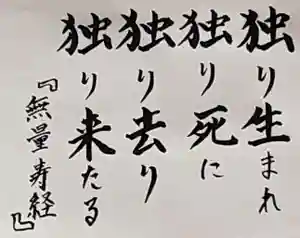 独り生まれ
独り死に
独り去り
独り来たる
『無量寿経』